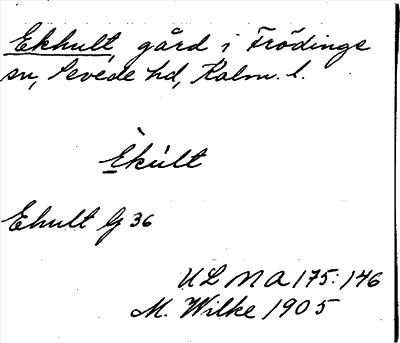 Ekhult, gård i Frödinge
sn, Sevede hd, Kalm. l.
Èkúlt
Ehult G 36
ULMA 175:146
M. Wilke 1905